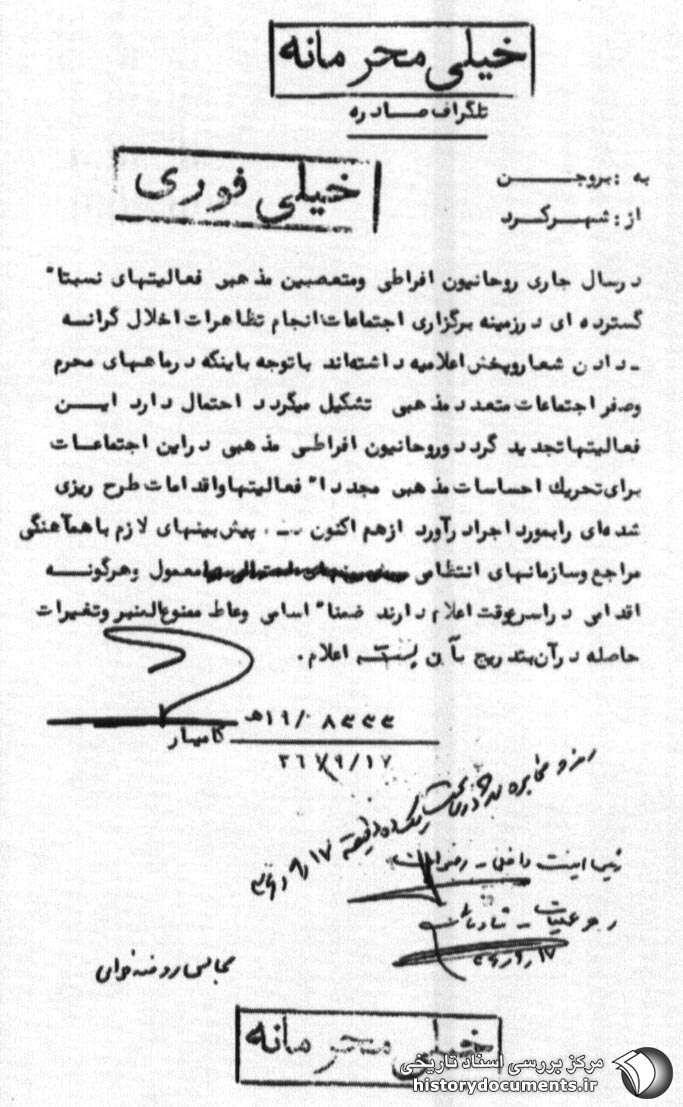 خیلی محرمانه
تلگراف صادره
خیلی فوری
به : بروجن
از : شهرکرد
درسال جاری روحانیون افراطی ومتعصبین مذهبی فعالیتهای نسبتا"
گسترده ای درزمینه برگزاری اجتماعات انجام تظاهرات اخلال گرانه
ـ دادن شعاروپخش اعلامیه داشته‌اند باتوجه باینکه درماههای محرم
وصفر اجتماعات متعدد مذهبی تشکیل میگردد احتمال دارد این
فعالیتها تجدید گردد وروحانیون افراطی مذهبی دراین اجتماعات
برای تحریك احساسات مذهبی مجددا" فعالیتها واقدامات طرح ریزی
شده‌ای رابمورد اجراد رآورد ازهم اکنون ... پیش‌بینیهای لازم باهمآهنگی
مراجع وسازمانهای انتظامی معمول وهرگونه
اقدامی دراسرعوقت اعلام دارند ضمنا" اسامی وعاظ ممنوع‌المنبر وتغیرات
حاصله درآن بتدریج بآن اعلام.
۸۳۳۳ /۱۹ه‍
کامیار
۳۶/۹/۱۷
رمز و مخابره شد
دقیقه ۱۷ر۹ر۳۶
داخلی -
۱۷ر۹ر۳۶
مجالس روضه خوانی
خیلی محرمانه
مرکز بررسی اسناد تاریخی
historydocuments.ir